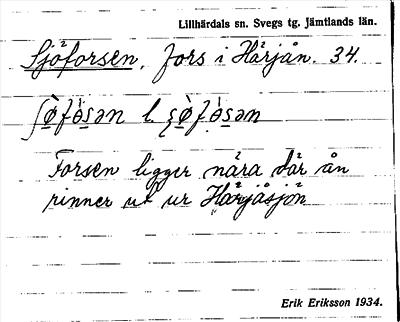 Lillhärdals sn. Svegs tg. Jämtlands län.
Sjöforsen, fors i Härjån. 34.
ʃø̀fòsən l. ʂø̀fòsən
Forsen ligger nära där ån
rinner ut ur Härjåsjön
Erik Eriksson 1934.